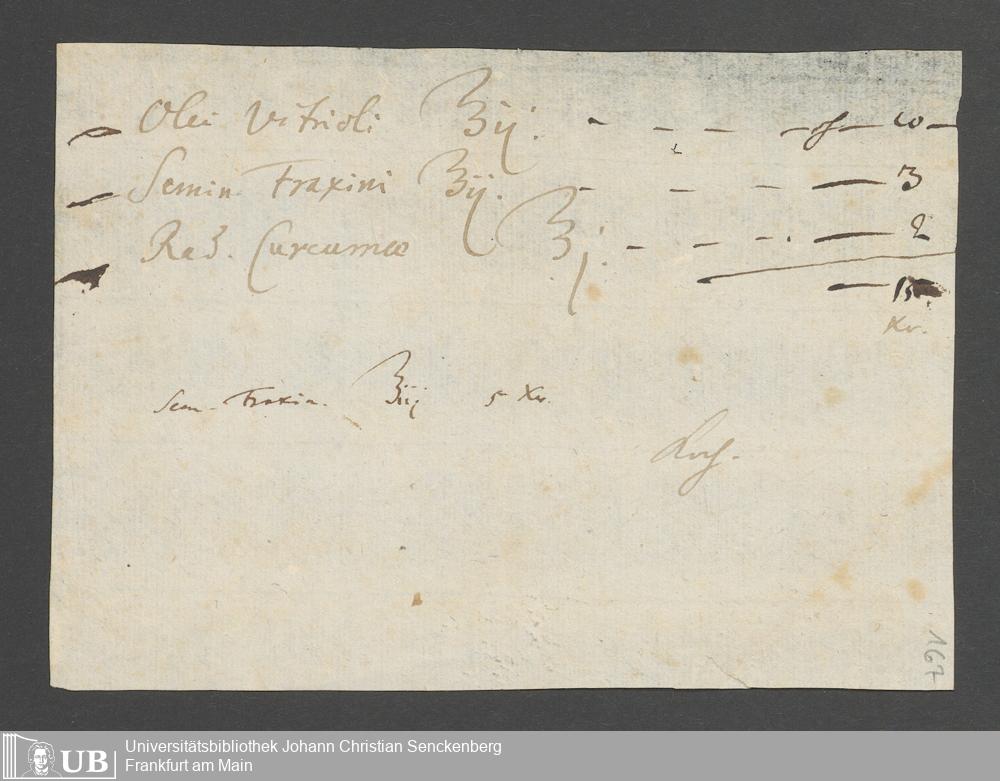 Olei Vitrioli ℥ij. - - - - f - 10 -
Semin. Fraxini ℥ij. - - - - 3
Rad. Curcumae ℥j. - - - - 2
15
Xr.
Sem. Fraxin. ℥iij 5 Xr.
Koch.
167
UB
Universitätsbibliothek Johann Christian Senckenberg
Frankfurt am Main